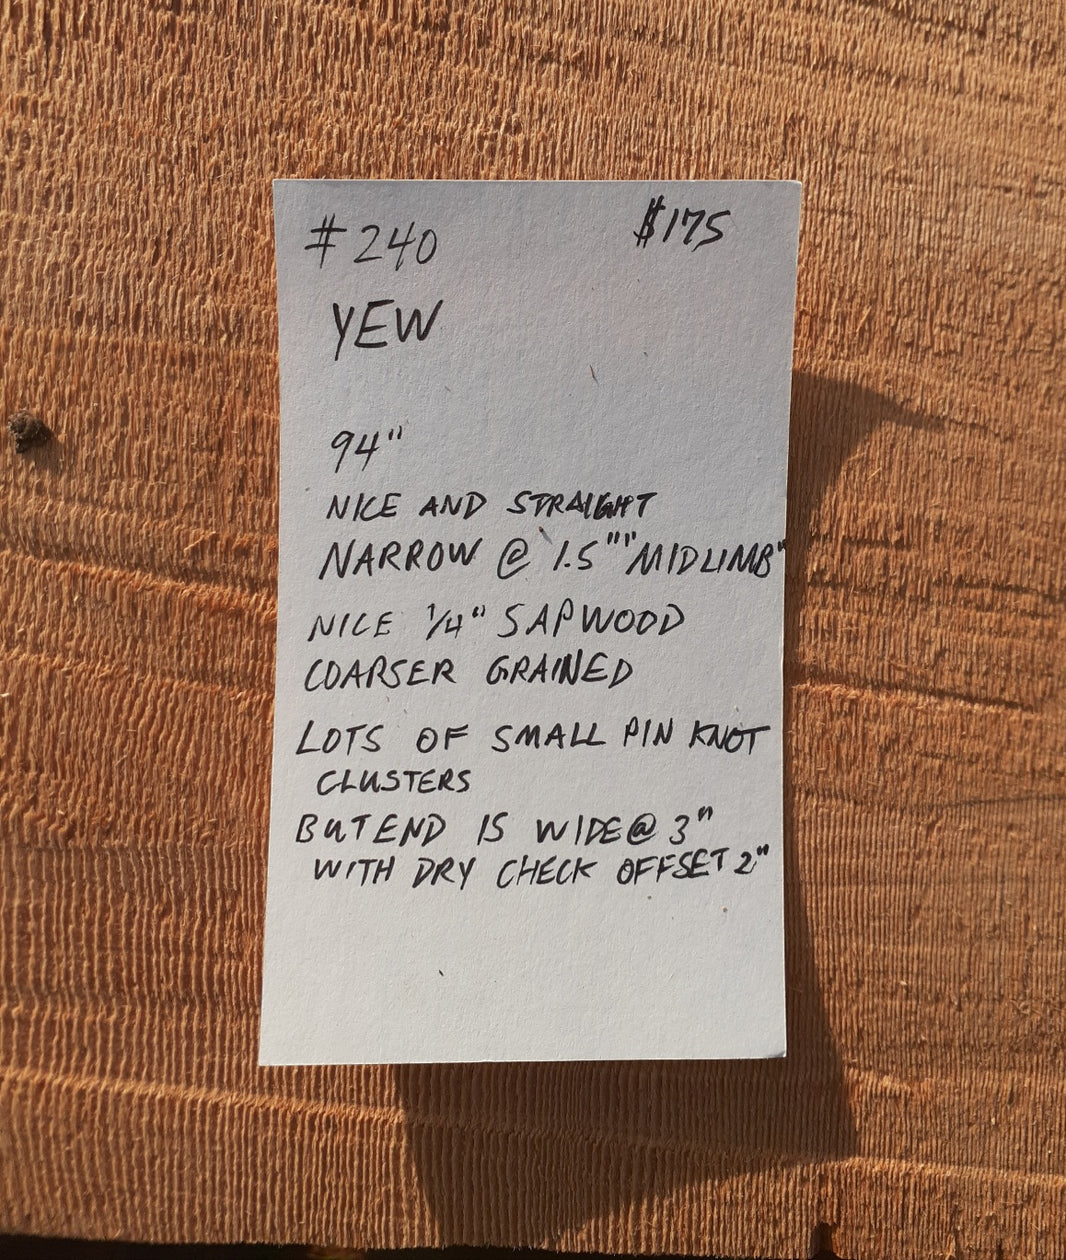 #240 $175
YEW
94"
NICE AND STRAIGHT
NARROW @ 1.5" "MIDLIMB"
NICE 1/4" SAPWOOD
COARSER GRAINED
LOTS OF SMALL PIN KNOT
CLUSTERS
BUTEND IS WIDE @ 3"
WITH DRY CHECK OFFSET 2"